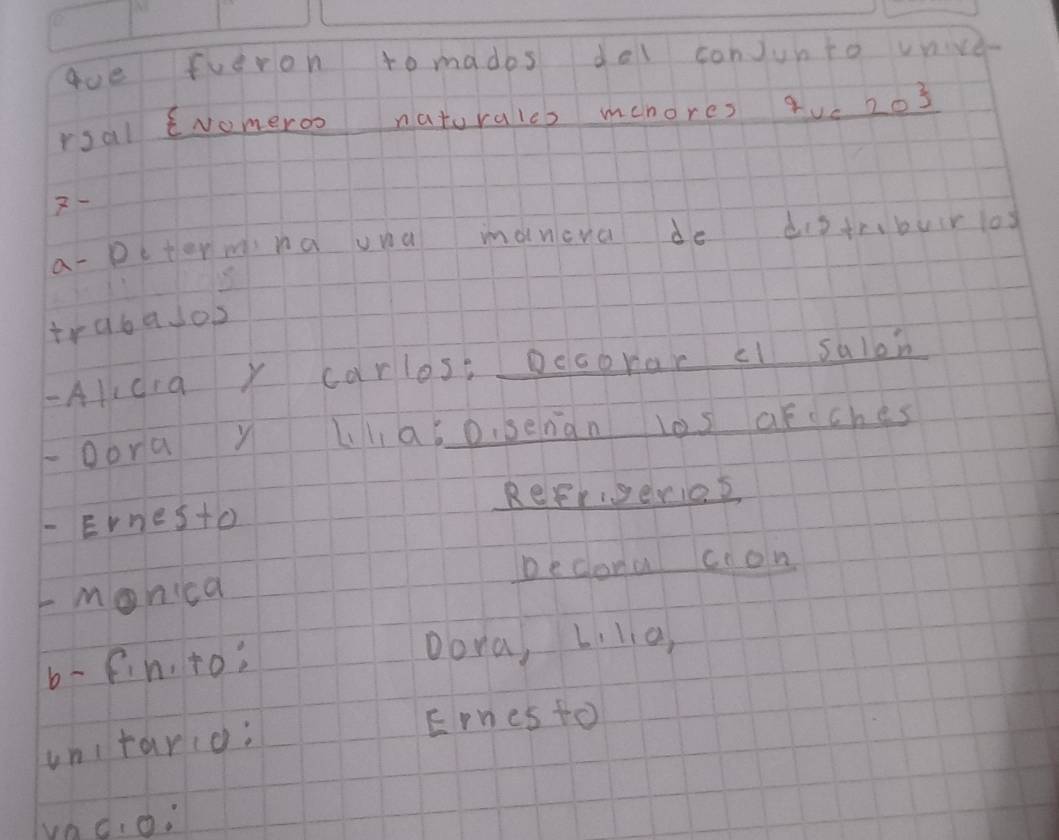 que fueron tomados del conjunto unive-
rsal {Nomeros naturales menores que 20}
7-
a- Determina una manera de distribuir los
trabajos
- Alicia y carlos: Decorar el salón
- Dora y Lilia: Diseñan los afiches
- Ernesto Refrigerios
- monica Decora cion
b- finito: Dora, Lilia,
unitario: Ernesto
vacio: